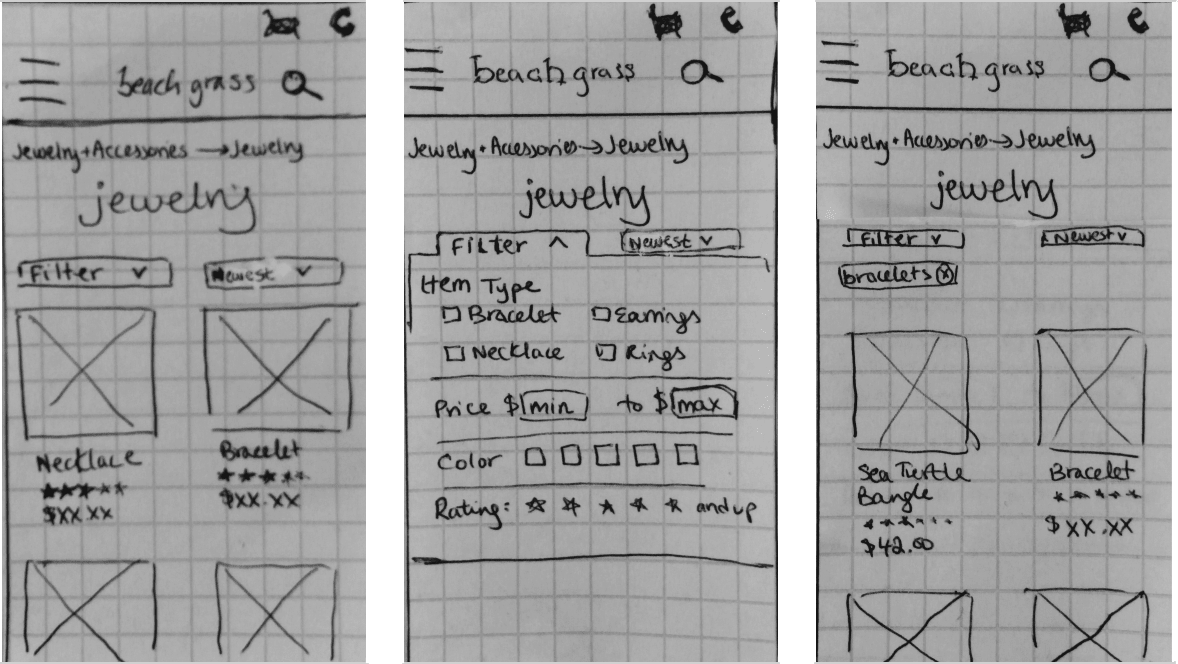 beach grass
Jewelry + Accessories → Jewelry
jewelry
Filter ∨ Newest ∨
Necklace Bracelet
$XX.XX $XX.XX
beach grass
Jewelry + Accessories → Jewelry
jewelry
Filter ∧ Newest ∨
Item Type
Bracelet Earrings
Necklace Rings
Price $ min to $ max
Color
Rating: ☆ ☆ ☆ ☆ ☆ and up
beach grass
Jewelry + Accessories → Jewelry
jewelry
Filter ∨ Newest ∨
bracelets ⓧ
Sea Turtle Bracelet
Bangle
$42.00 $XX.XX